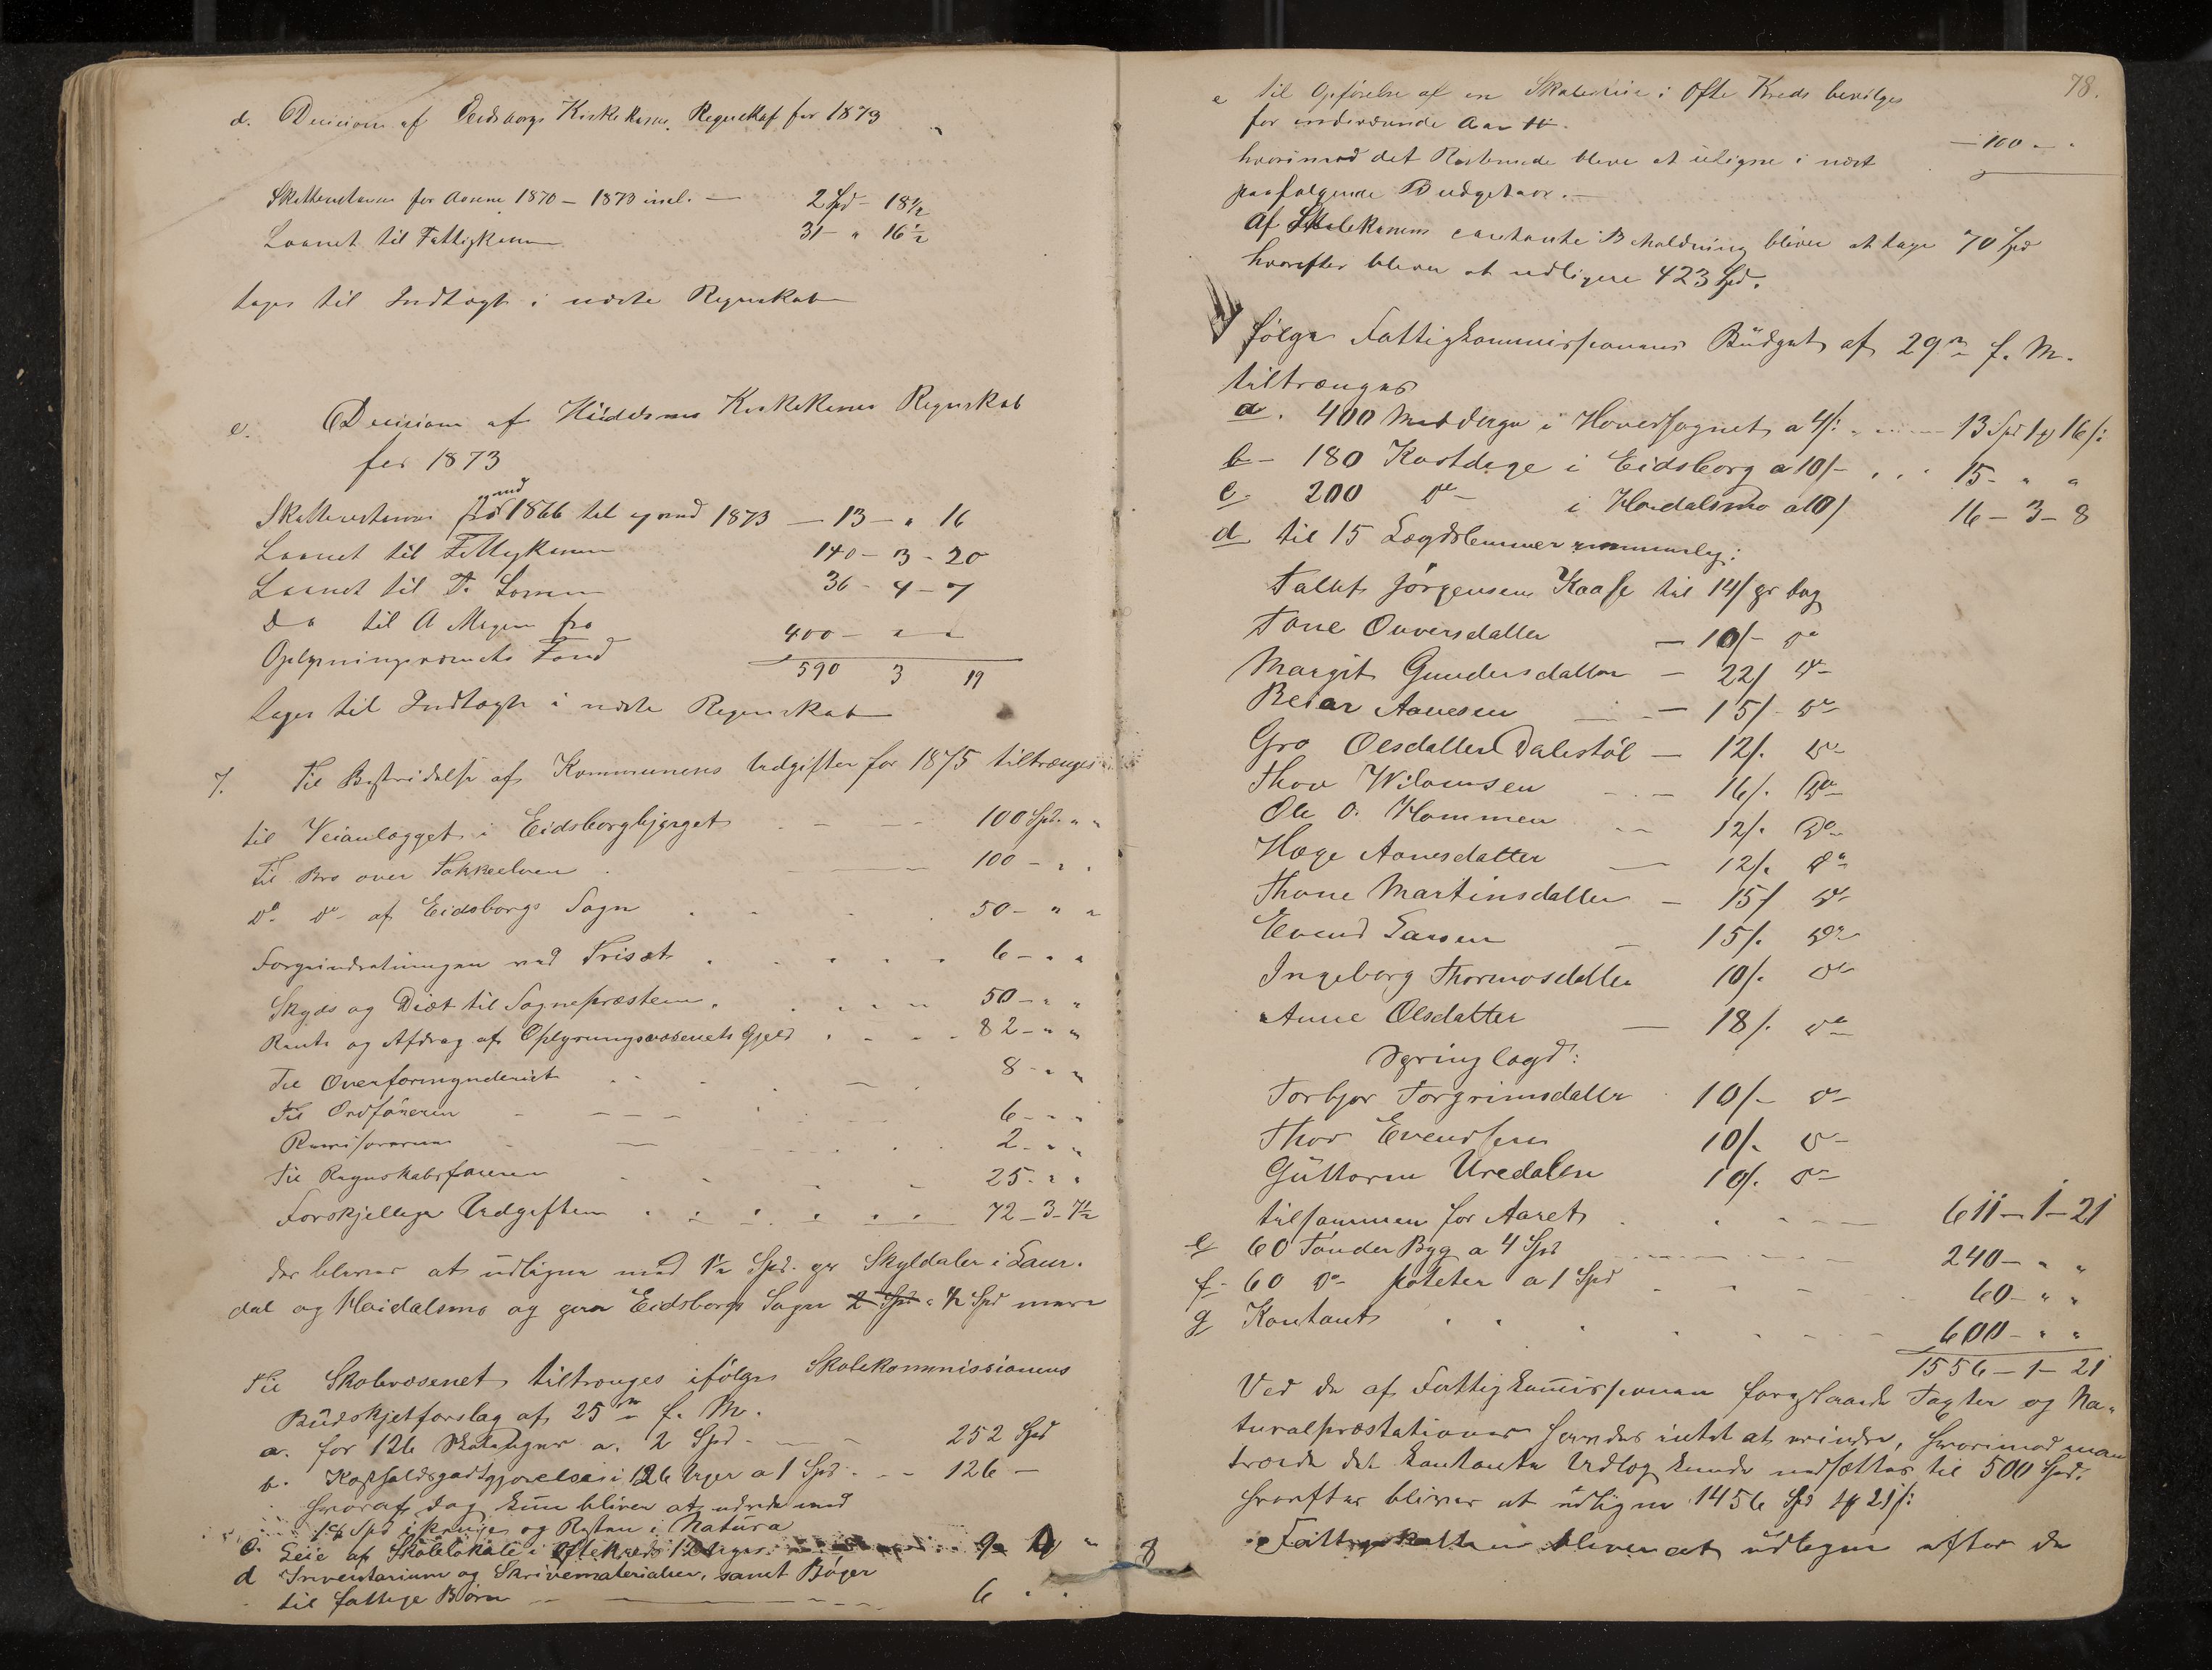 d. Decision af Eidsborgs Kirkekasses Regnskab for 1873
Skatterestancer for Aarene 1870 – 1873 incl. — 2 Spd – 18 1/2
Laanet til Fattigkassen 31 – " 16 1/2
tages til Indtægt i næste Regnskab
e. Decision af Höidalsmo Kirkekasses Regnskab
for 1873
Skatterestancer fra og med 1866 til og med 1873 — 13 – " 16
Laanet til Fattigkassen 140 – 3 – 20
Laanet til T. 36 – 4 – 7
Do til A fra
Oplysningsvæsenets Fond 400 – " "
590 3 19
tages til Indtægt i næste Regnskab
7. Til Bestridelse af Kommunens Udgifter for 1875 tiltrænges
til Veianlægget i Eidsborgbjerget 100 Spd. " "
Til Bro over Tokkeelven 100 – " "
Do Do af Eidsborgs Sogn 50 – " "
ved Trisæt 6 – " "
Skyds og Diæt til Sognepræsten 50 – " "
Rente og Afdrag af Oplysningsvæsenets Gjeld 82 – " "
Til Overformynderiet 8 – " "
Til Ordföreren 6 – " "
Revisorerne 2 – " "
Til Regnskabsföreren 25 – " "
Forskjellige Udgifter 72 – 3 – 7 1/2
der bliver at udligne med 1 1/2 Spd. pr Skyldaler i Laur-
dal og Høidalsmo og paa Eidsborgs Sogn 2 Spd " 1/2 Spd mere
Til Skolevæsenet tiltrænges ifölge Skolekommissionens
Büdskjetforslag af 25de f. M.
a. for 126 Skoleuger a. 2 Spd – 252 Spd
b. Kostholdsgodtgjørelse i 126 Uger a 1 Spd 126 –
hvoraf dog kun bliver at udrede med
18 Spd i Penge og Resten i Natura
c. Leie af Skolelokale i Ofte Kreds 12 Uger 9 "
d Inventarium og Skrivematerialier, samt Bøger
til fattige Børn 6 " "
78.
e til Opförelse af en Skolestue i Ofte Kreds bevilges
for indeværende Aar
hvorimod det Resterende bliver at udligne i næst — 100 " "
paafølgende Budgetaar. —
Af Skolekassens contante Beholdning bliver at tage 70 Spd
hvorefter bliver at udligne 423 Spd.
følge Fattigkommissionens Büdget af 29de f. M.
tiltrænges
a. 400 Matdage i Hovedsognet a 4/: 13 Spd 1 16/:
b – 180 Kostdage i Eidsborg a 10/– 15 – " "
c – 200 Do – i Høidalsmo a 10/ 16 – 3 – 8
d til 15 Lægdslemmer nemmerlig:
Jörgensen Kaase til 14/ pr Dag
Tone Ouversdatter — 10/– Do
Margit Gundersdatter – 22/ Do –
Beiar Aanesen — 15/– Do
Gro Olsdatter Dalestöl — 12/. Do
Thov Wilomsen — 16/. Do
Ole O. Hommen – 12/. Do
Hæge Aanesdatter — 12/. Do
Thone Martinsdatter — 15/ Do
Evend Larsen – 15/. Do
Ingeborg Thormosdatter 10/. Do
Anne Olsdatter — 18/. Do
Springlægd:
Torbjør Torgrimsdatter 10/– Do
Thor Evendsen 10/. Do –
Güttorm Uredalen 10/. Do –
tilsammen for Aaret 611 – 1 – 21
e 60 Tönder Byg a 4 Spd 240 – " "
f – 60 Do poteter a 1 Spd 60 – " "
g Kontant 600 – " "
1556 – 1 – 21
Ved de af Fattigkommissionen foreslaaede Taxter og Na-
turalpræstationer fandtes intet at erindre, hvorimod man
troede det kontante Udlog kunde nedsættes til 500 Spd.
hvorefter bliver at udligne 1456 Spd 1 21/:
Fattigskatten bliver at üdligne efter de
3